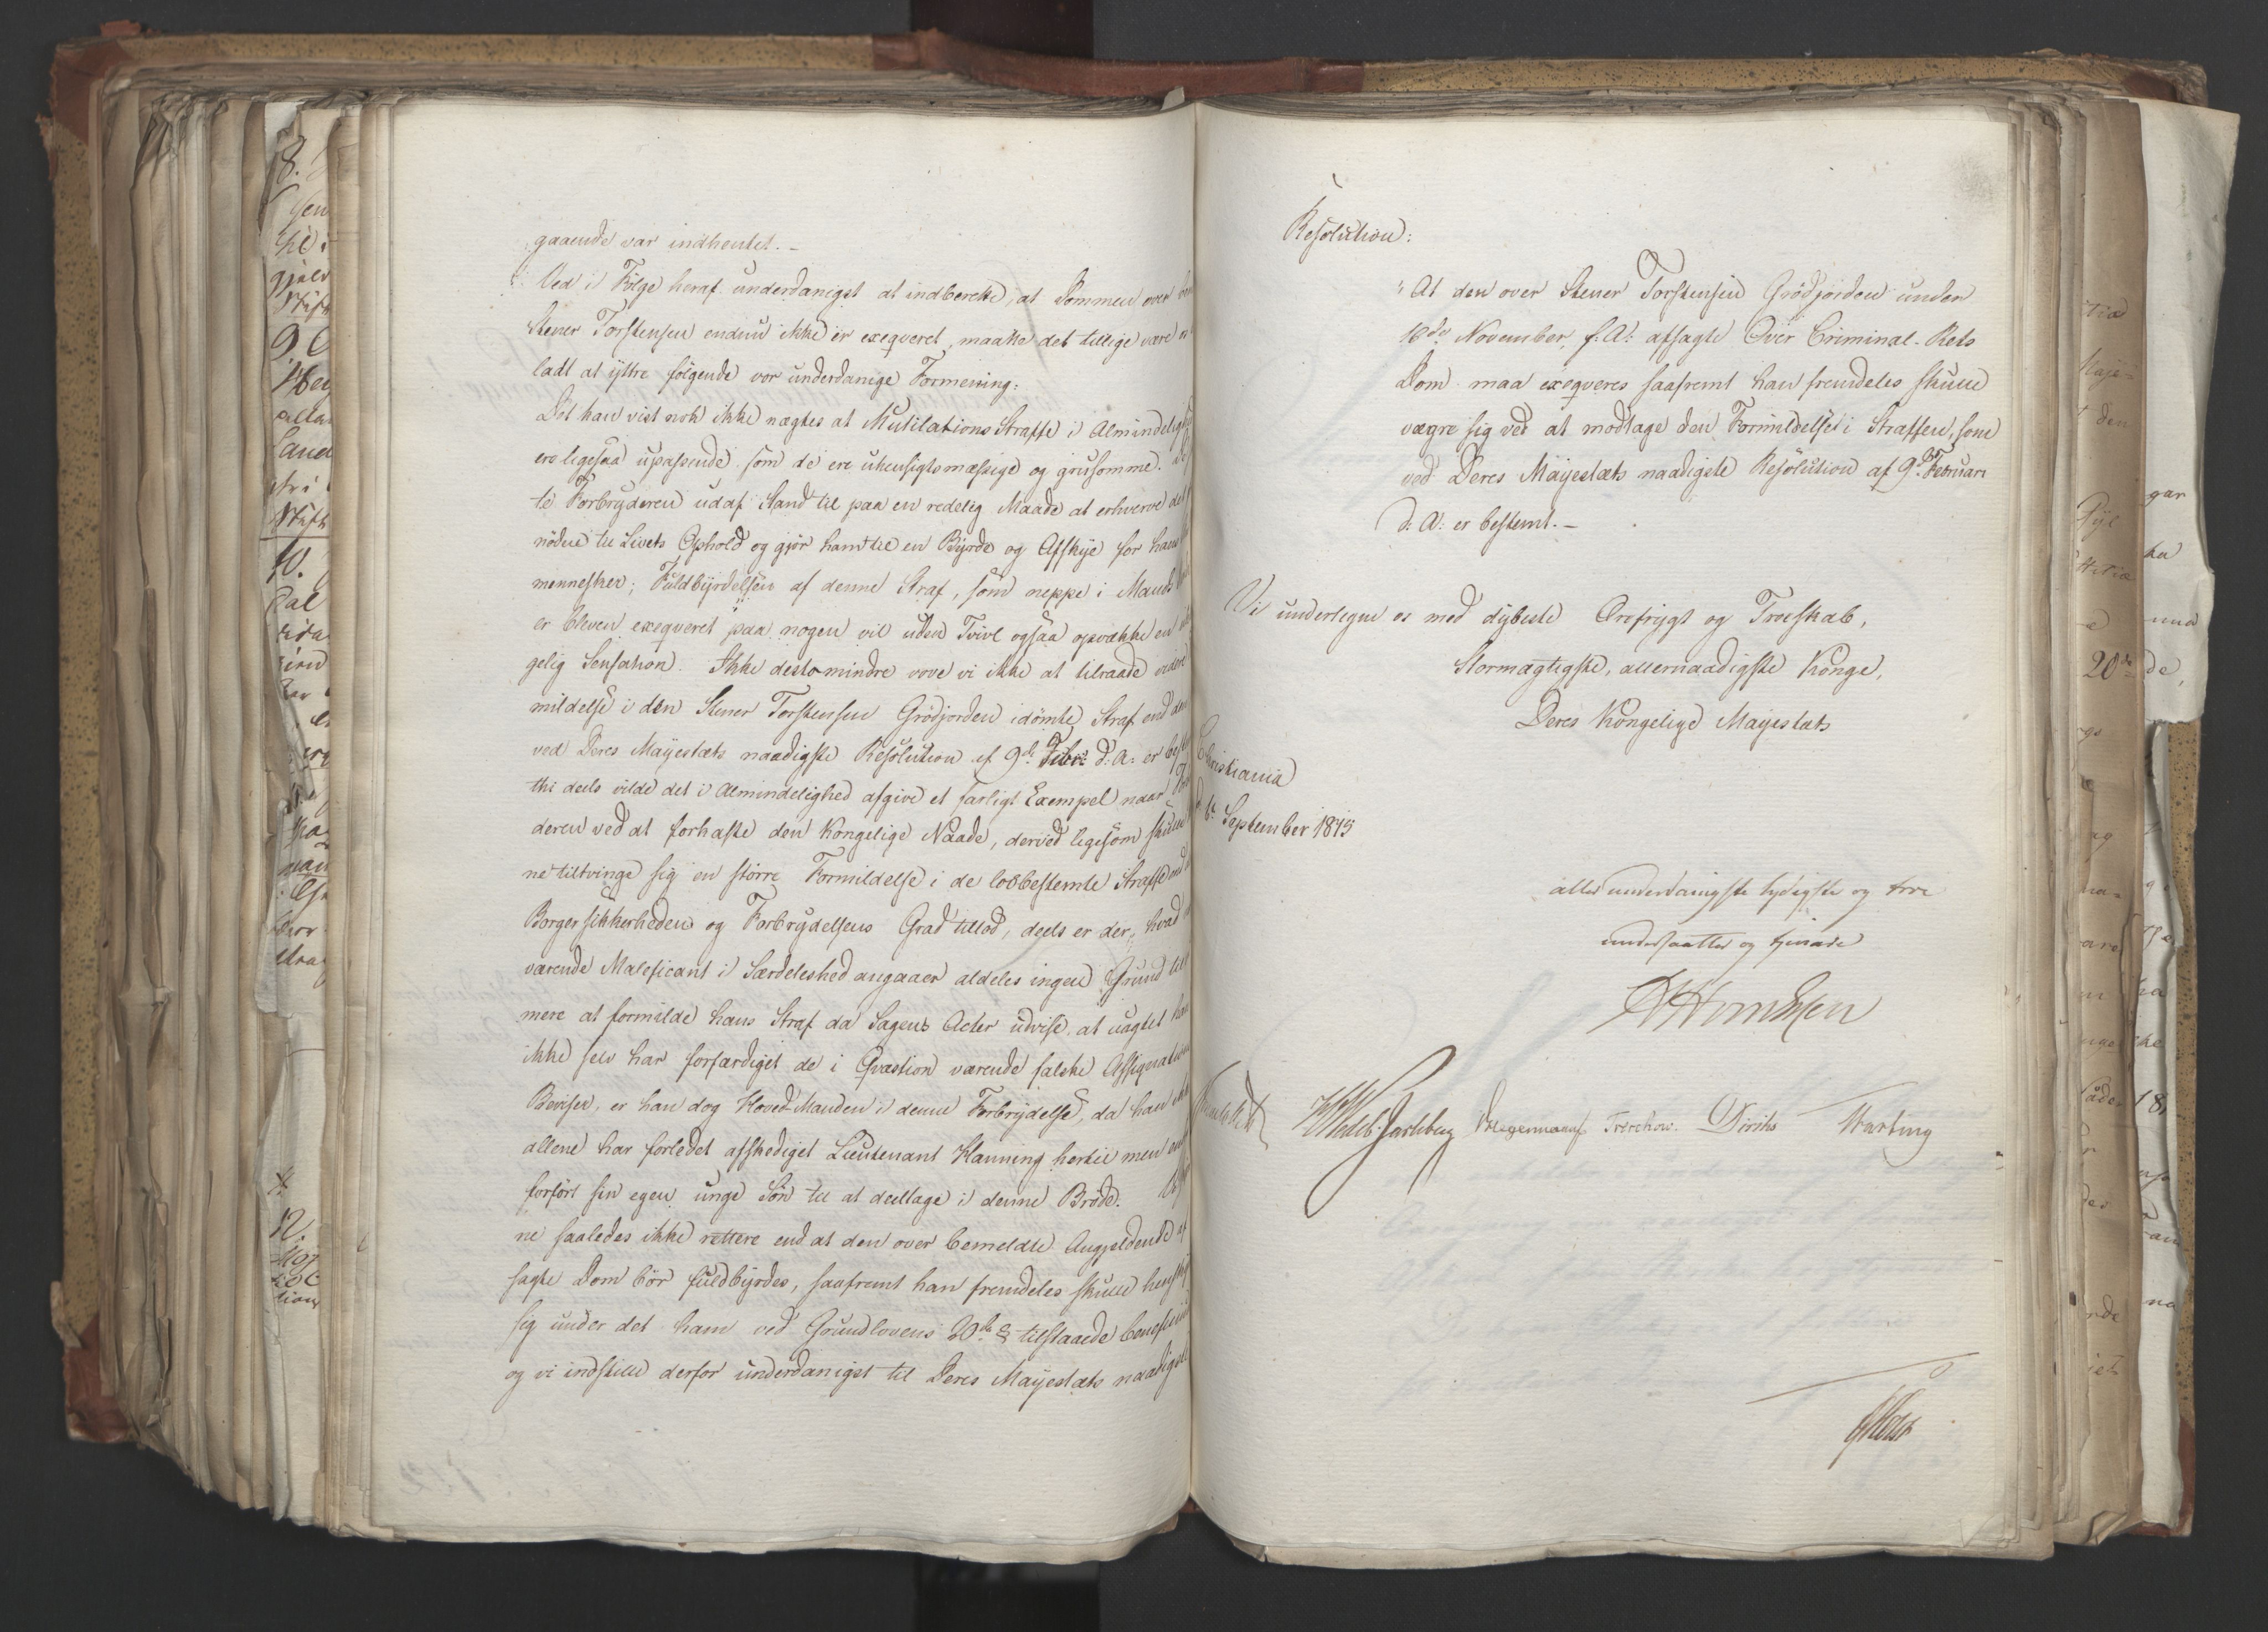 gaaende var indhentet. –
Ved i Følge heraf underdanigst at indberette, at Dommen over
Stener Torstensen endnu ikke er exeqveret, maatte det tillige være
ladt at yttre følgende vor underdanige Formening:
Det kan vist nok ikke nægtes at Mutilations Straffe i Almindelig
ere ligesaa upassende som de ere uhensigtsmæssige og grusomme.
te Forbryderen udaf Stand til paa en redelig Maade at erhverve det
nödne til Livets Ophold og gjör ham til en Byrde og Afskye for hans
mennesker; Fuldbyrdelsen af denne Straf, som neppe i Mands
er bleven exeqveret paa nogen vil uden Tvivl ogsaa opvække en
gelig Sensation. Ikke destomindre vove vi ikke at tilraade videre
mildelse i den Stener Torstensen Grödjorden idömte Straf end den
ved Deres Mayestæts naadigste Resolution af 9de Febr: d: A: er best
thi deels vilde det i Almindelighed afgive et farligt Exempel naar For
deren ved at forhaste den Kongelige Naade, derved ligesom skulle
ne tiltvinge sig en större Formildelse i de lovbestemte Straffe end
Borgersikkerheden og Forbrydelsens Grad tillod, deels er der, hvad
værende Maleficant i Særdeleshed angaaer aldeles ingen Grund til
mere at formilde hans Straf da Sagens Acter udvise at uagtet han
ikke selv har forfærdiget de i Qvæstion værende falske Assignation
Beviser, er han dog Hoved-Manden i denne Forbrydelse, da han
allene har forledet afskediget Lieutenant Hanning hertil men
forfört sin egen unge Sön til at deeltage i denne Bröde.
ne saaledes ikke rettere end at den over bemeldte Angjeldende af
sagte Dom bör fuldbyrdes, saafremt han fremdeles skulle
sig under det ham ved Grundlovens 20de § tilstaaede beneficium
og vi indstille derfor underdanigst til Deres Mayestæts naadigste
Resolution:
"At den over Stener Torstensen Grödjorden under
10de November f: A: afsagte Over Criminal-Rets
Dom maa exeqveres saafremt han fremdeles skulle
vægre sig ved at modtage den Formildelse i Straffen, som
ved Deres Mayestæts naadigste Resolution af 9de Februari
d: A: er bestemt. –
Vi undertegne os med dybeste Ærefrygt og Troeskab,
Stormægtigste, allernaadigste Konge,
Deres Kongelige Mayestæts
Christiania
d 6te September 1815
allerunderdanigste lydigste og troe
undersaatter og tjenere
Wedel-Jarlsberg Hegermann Treschow. Diriks